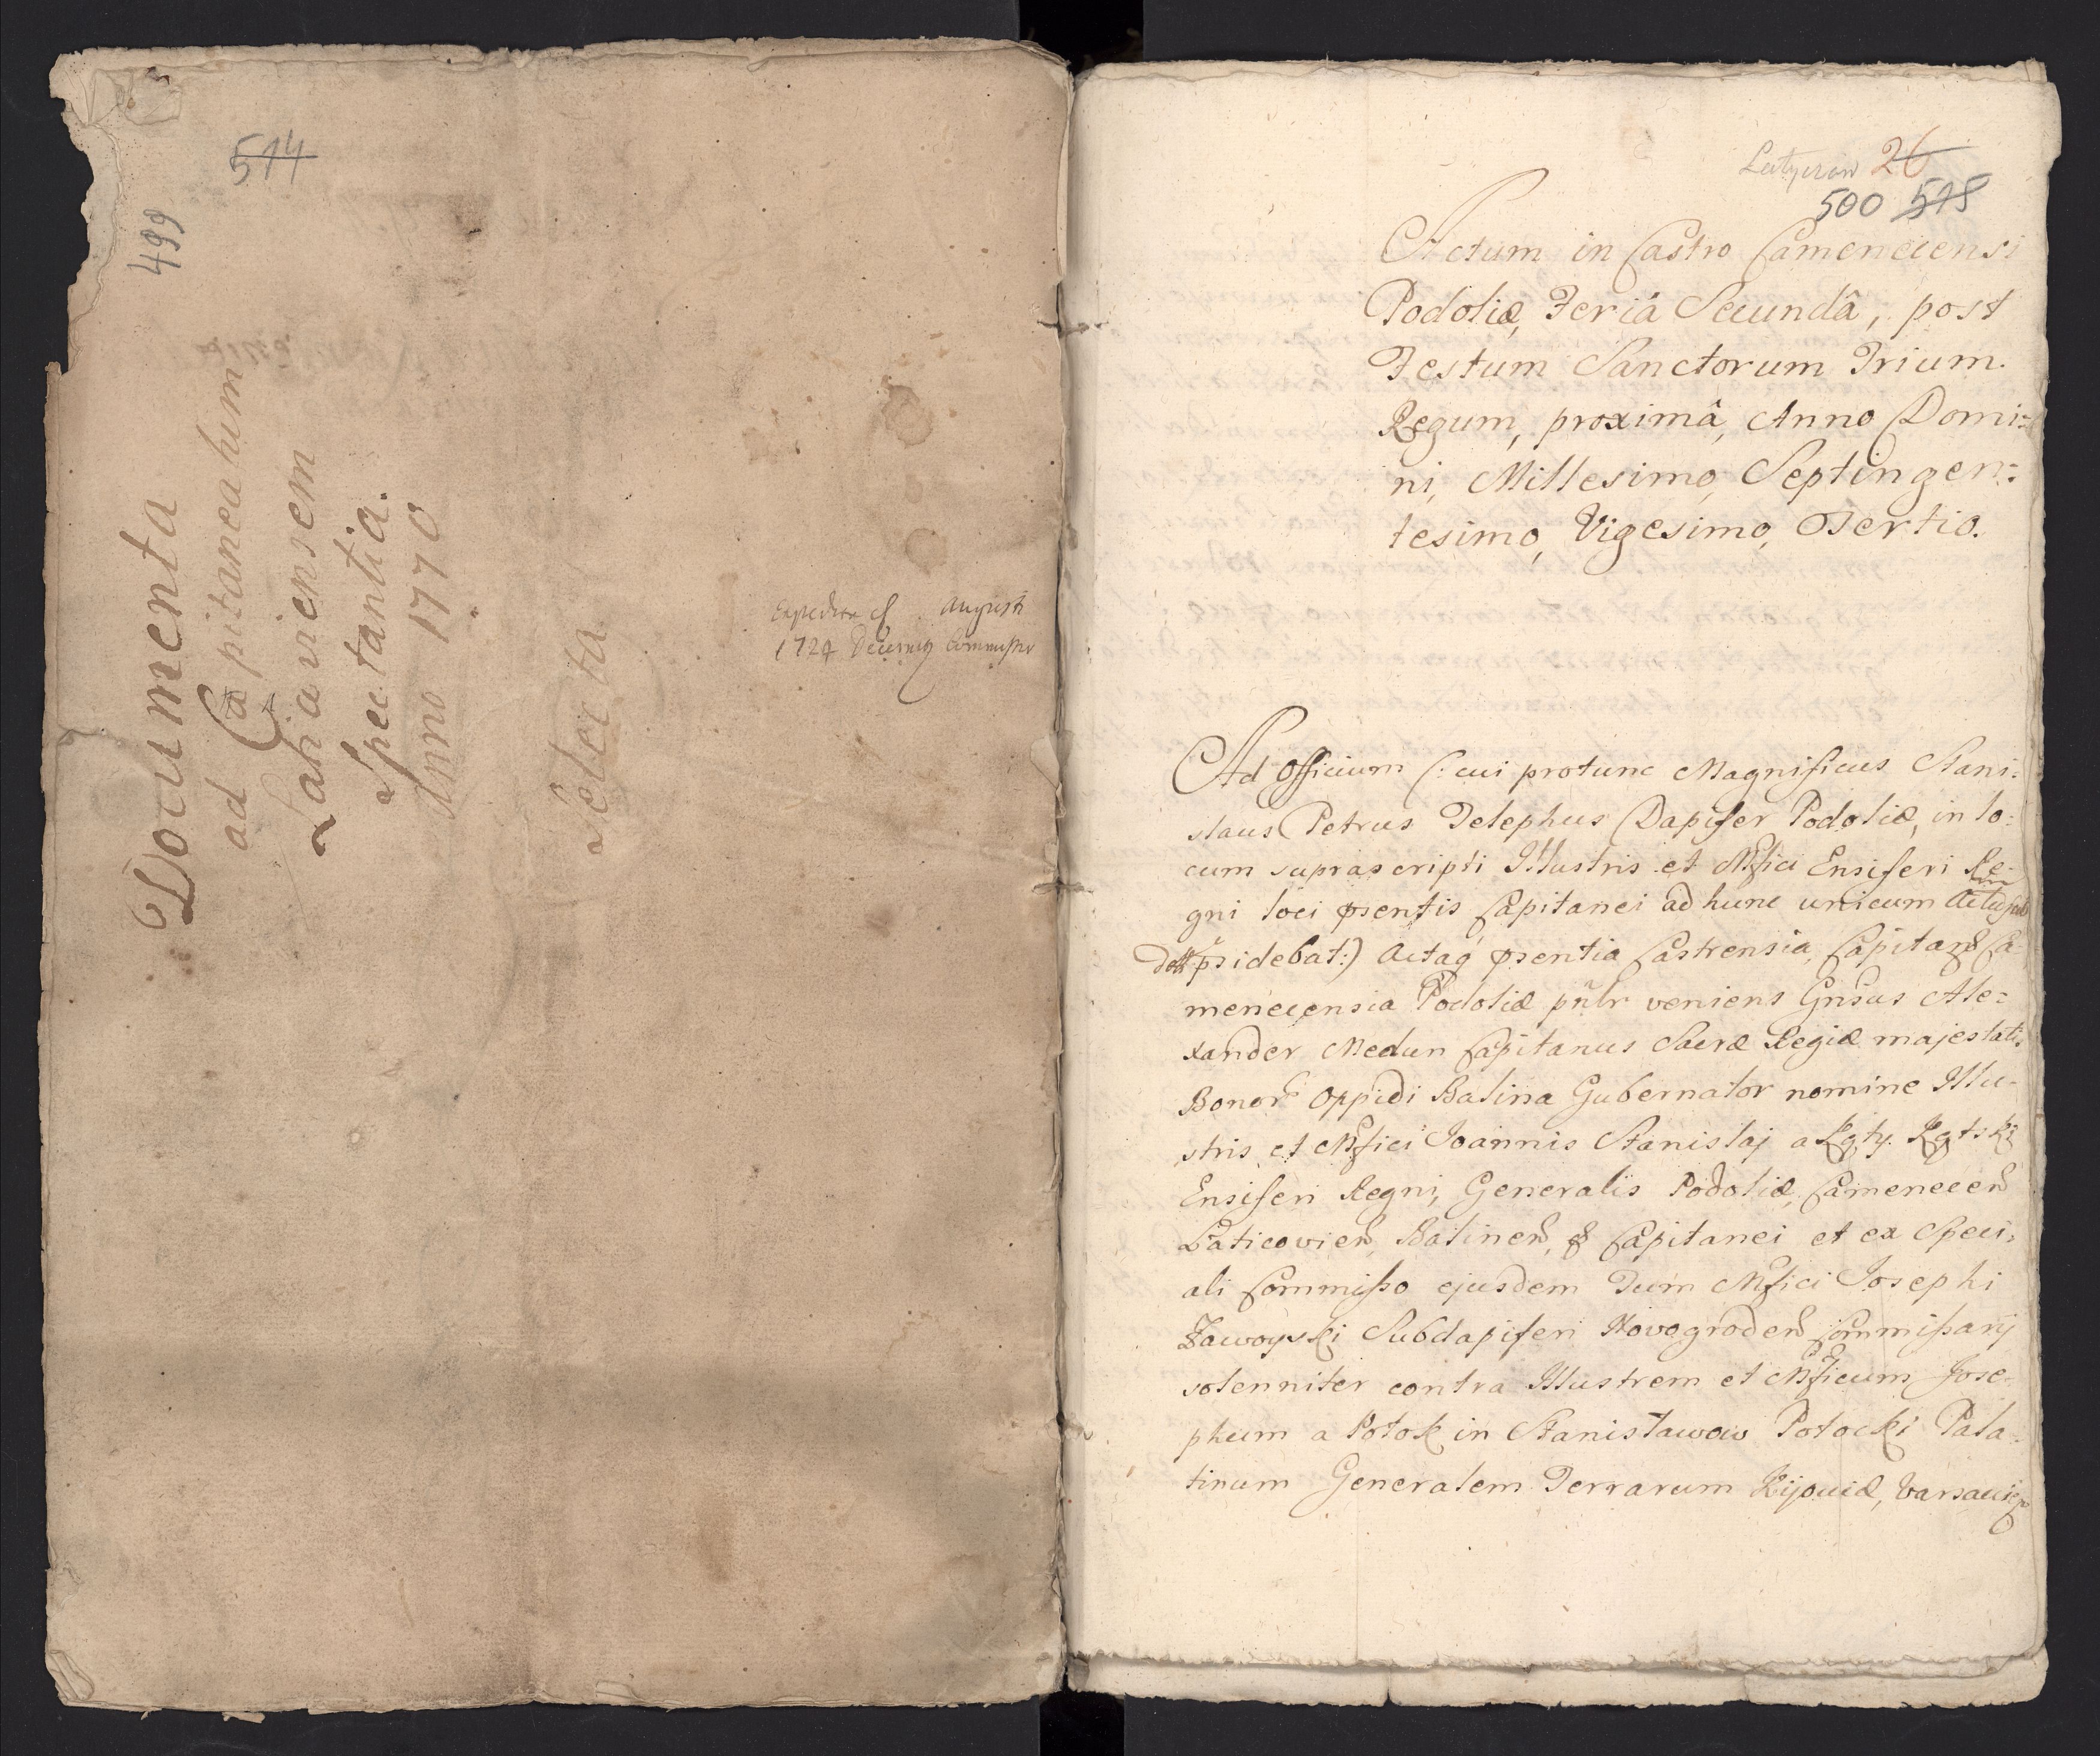 514
499
Documenta
ad Capitaneatum
Latiaviensem
Spectantia.
Anno 1770
Selecta
Expedita Augusti
1724
Latyczow 26
500 515
Actum in Castro Camenecensi
Podoliæ, Feriâ Secundâ, post
Festum Sanctorum Trium
Regum, proximâ, Anno Domi=
ni, Millesimo, Septingen=
tesimo, Vigesimo, Tertio.
Ad Officium (: cui protunc Magnificus Stani=
slaus Petrus Telephus Dapifer Podoliæ, in lo=
cum suprascripti Illustris et Mfici Ensiferi Re=
gni loci psentis Capitanei ad hunc unicum Actum
psidebat:) Actaq psentia Castrensia, Capitanea Ca=
menecensia Podoliæ pnlr veniens Gnsus Ale=
xander Medun Capitanus Sacræ Regiæ majestatis
Bonor Oppidi Balina Gubernator nomine Illu=
stris et Mfici Joannis Stanislaj a Kąty Kątski
Ensiferi Regni, Generalis Podoliæ, Camenecen
Laticovien, Balinen, Capitanei et ex Speci=
ali Commisso ejusdem Tum Mfici Josephi
Zawoyski Subdapiferi Novogroden Commissarij
solenniter contra Illustrem et Mficum Jose=
phum a Potok in Stanisławow Potocki Pala=
tinum Generalem Terrarum Kijoviæ, Varsavien